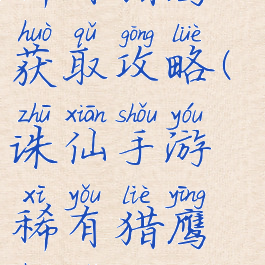 huò qǔ gōng lüè
获取攻略(
zhū xiān shǒu yóu
诛仙手游
xī yǒu liè yīng
稀有猎鹰